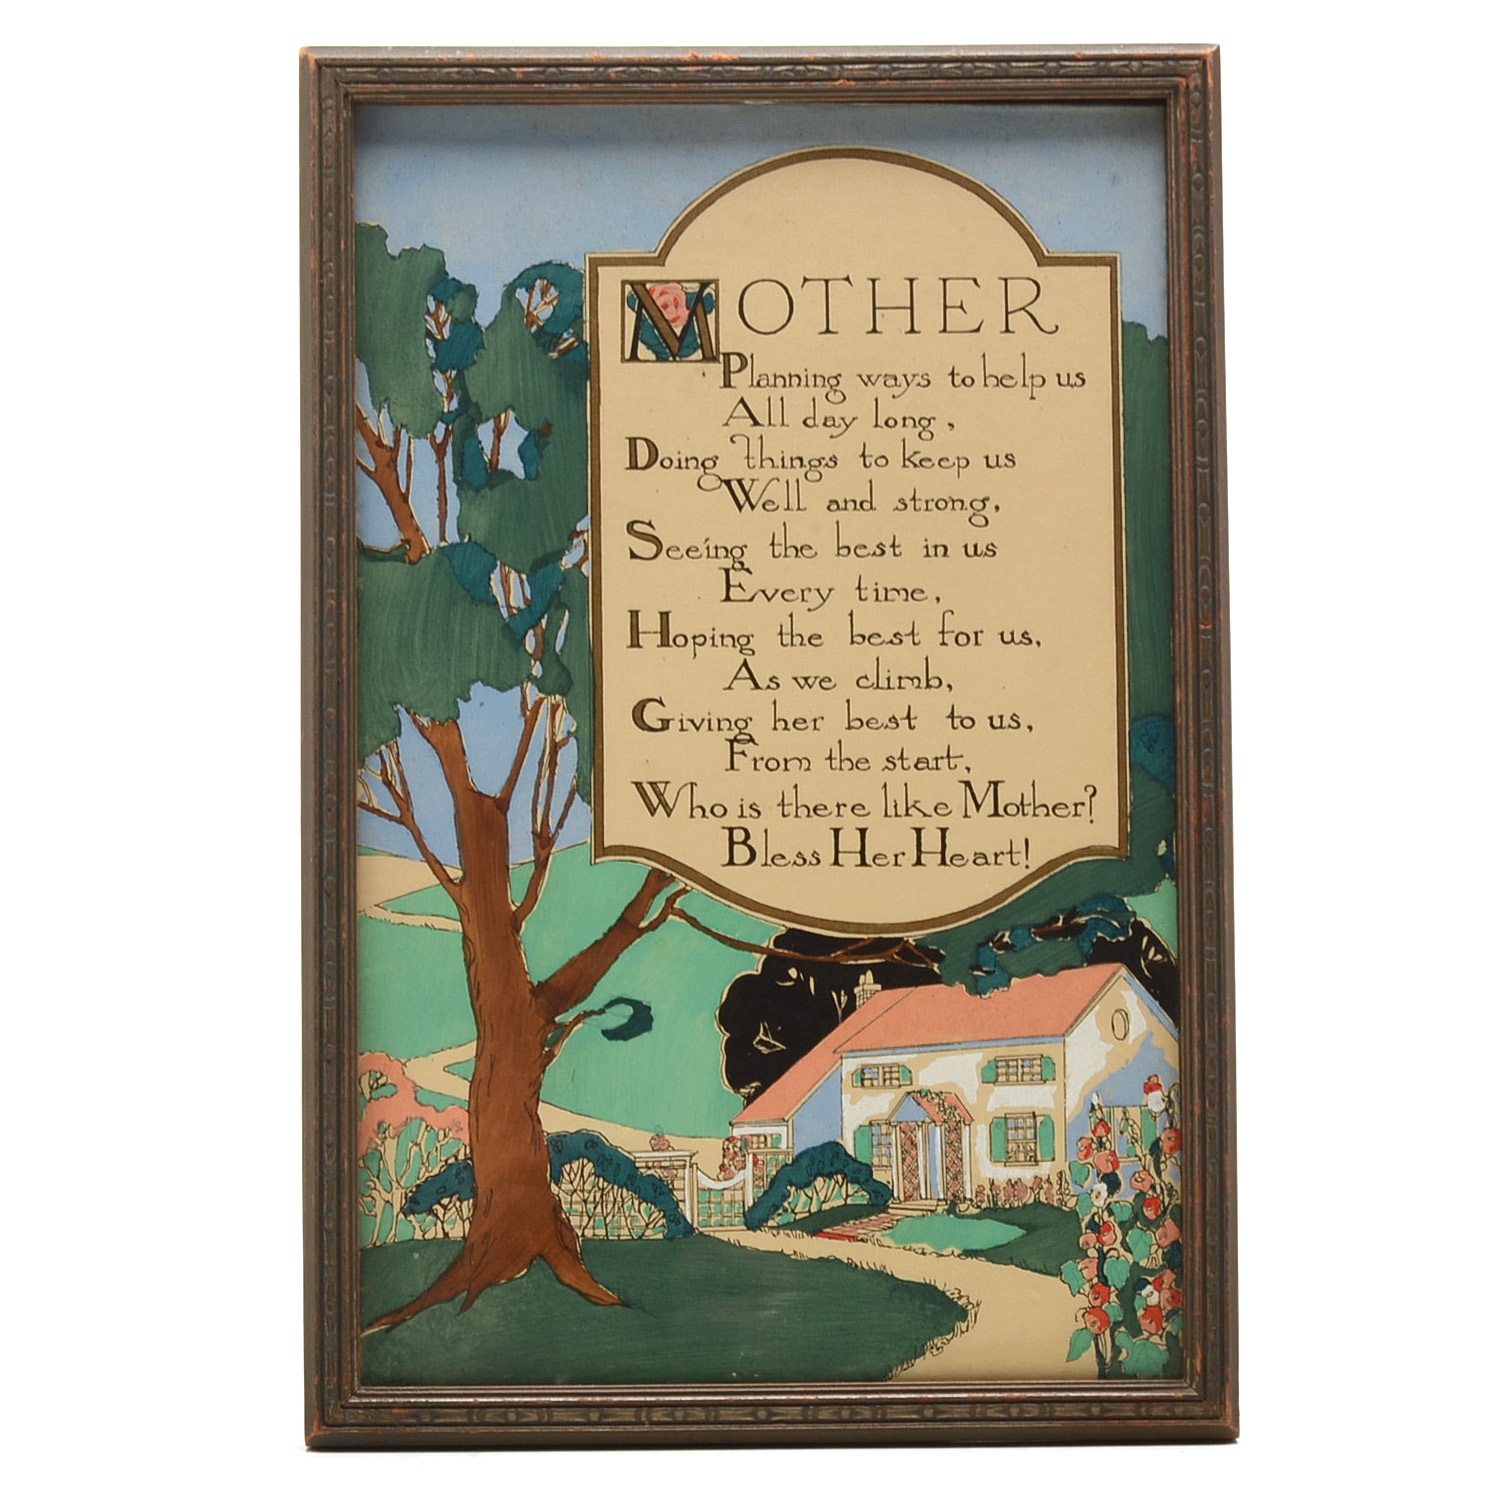 MOTHER
Planning ways to help us
All day long,
Doing things to keep us
Well and strong,
Seeing the best in us
Every time,
Hoping the best for us,
As we climb,
Giving her best to us,
From the start,
Who is there like Mother?
Bless Her Heart!